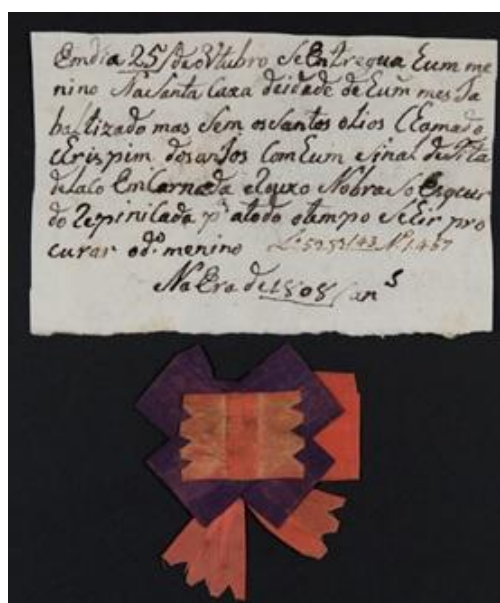 Em dia 25 de oVtubro Se Entregua Eum me
nino Na Santa Caxa de idade de Eum mes Ja
baStizado mas Sem os Santos olios Clamado
Crispim dos anJos Com Eum Sinal de Fita
de laco EnCarnada eRouxo No braso Esquer
do Repinicada pª atodo otempo Se Eir pro
curar o dº menino Lº 59 fl 143 Nº 1.457
Na Era de 1808 an s